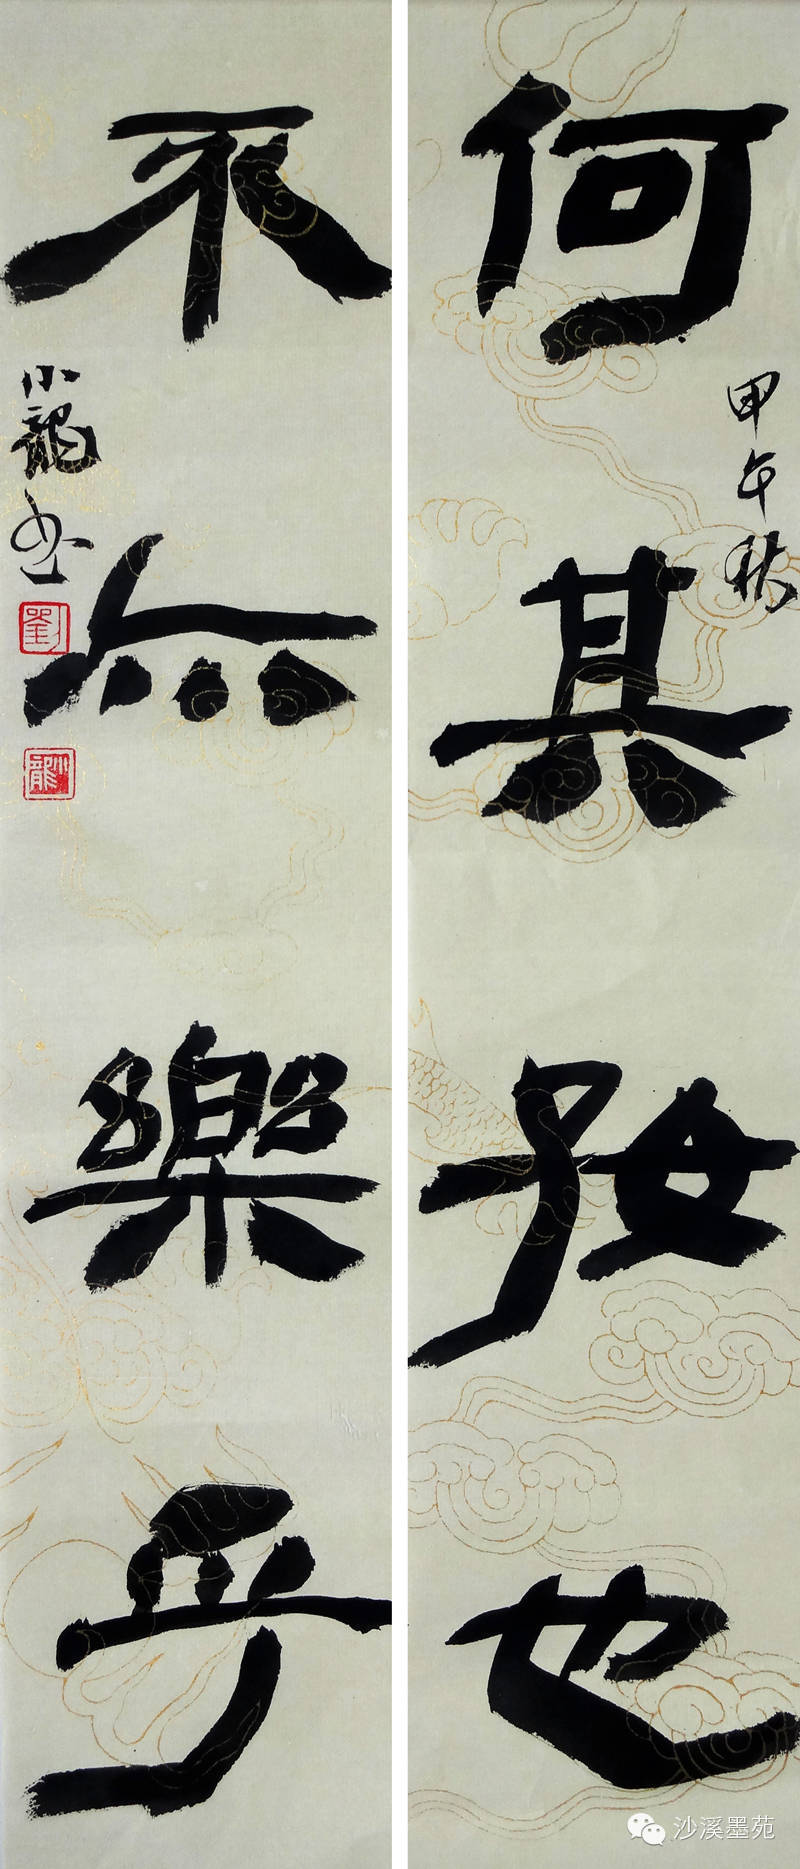 何其好也
甲午秋
不亦樂乎
小龍書
劉
小龍
沙溪墨苑